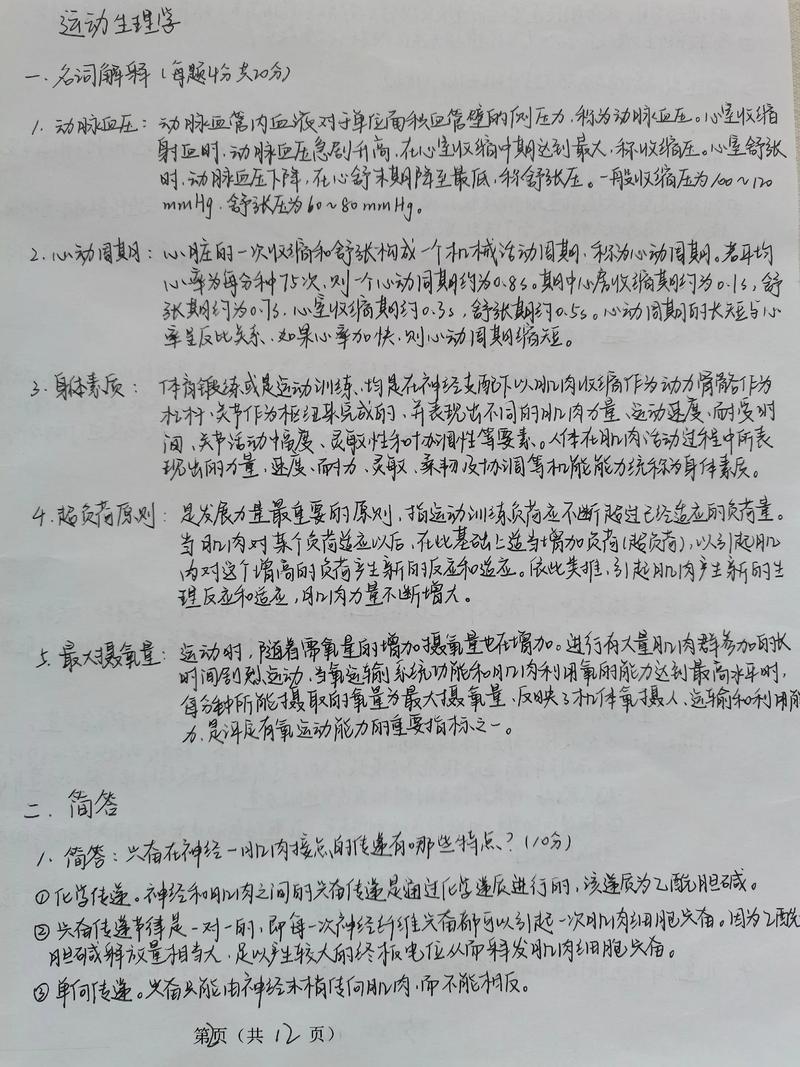 运动生理学
一、名词解释（每题4分共20分）
1. 动脉血压：动脉血管内血液对于单位面积血管壁的侧压力，称为动脉血压。心室收缩
射血时，动脉血压急剧升高，在心室收缩中期达到最大，称收缩压。心室舒张
时，动脉血压下降，在心舒末期降至最低，称舒张压。一般收缩压为100～120
mmHg，舒张压为60～80mmHg。
2. 心动周期：心脏的一次收缩和舒张构成一个机械活动周期，称为心动周期。若平均
心率为每分钟75次，则一个心动周期约为0.8s。期中心房收缩期约为0.1s，舒
张期约为0.7s，心室收缩期约0.3s，舒张期约0.5s。心动周期的长短与心
率呈反比关系，如果心率加快，则心动周期缩短。
3. 身体素质：体育锻练或是运动训练，均是在神经支配下以肌肉收缩作为动力骨骼作为
杠杆、关节作为枢纽来完成的，并表现出不同的肌肉力量、运动速度、耐受时
间、关节活动幅度、灵敏性和协调性等要素。人体在肌肉活动过程中所表
现出的力量、速度、耐力、灵敏、柔韧及协调等机能能力统称为身体素质。
4. 超负荷原则：是发展力量最重要的原则，指运动训练负荷应不断超过已经适应的负荷量。
当肌肉对某个负荷适应以后，在此基础上适当增加负荷（超负荷），以引起肌
肉对这个增高的负荷产生新的反应和适应。依此类推，引起肌肉产生新的生
理反应和适应，肌肉力量不断增大。
5. 最大摄氧量：运动时，随着需氧量的增加摄氧量也在增加。进行有大量肌肉群参加的长
时间剧烈运动，当氧运输系统功能和肌肉利用氧的能力达到最高水平时，
每分钟所能摄取的氧量为最大摄氧量，反映了机体氧摄入、运输和利用能
力，是评定有氧运动能力的重要指标之一。
二、简答
1. 简答：兴奋在神经—肌肉接点的传递有哪些特点？（10分）
①化学传递。神经和肌肉之间的兴奋传递是通过化学递质进行的，该递质为乙酰胆碱。
②兴奋传递节律是一对一的，即每一次神经纤维兴奋都可以引起一次肌肉细胞兴奋。因为乙酰
胆碱释放量相当大，足以产生较大的终板电位从而释发肌肉细胞兴奋。
③单向传递。兴奋只能由神经末梢传向肌肉，而不能相反。
第2页（共12页）